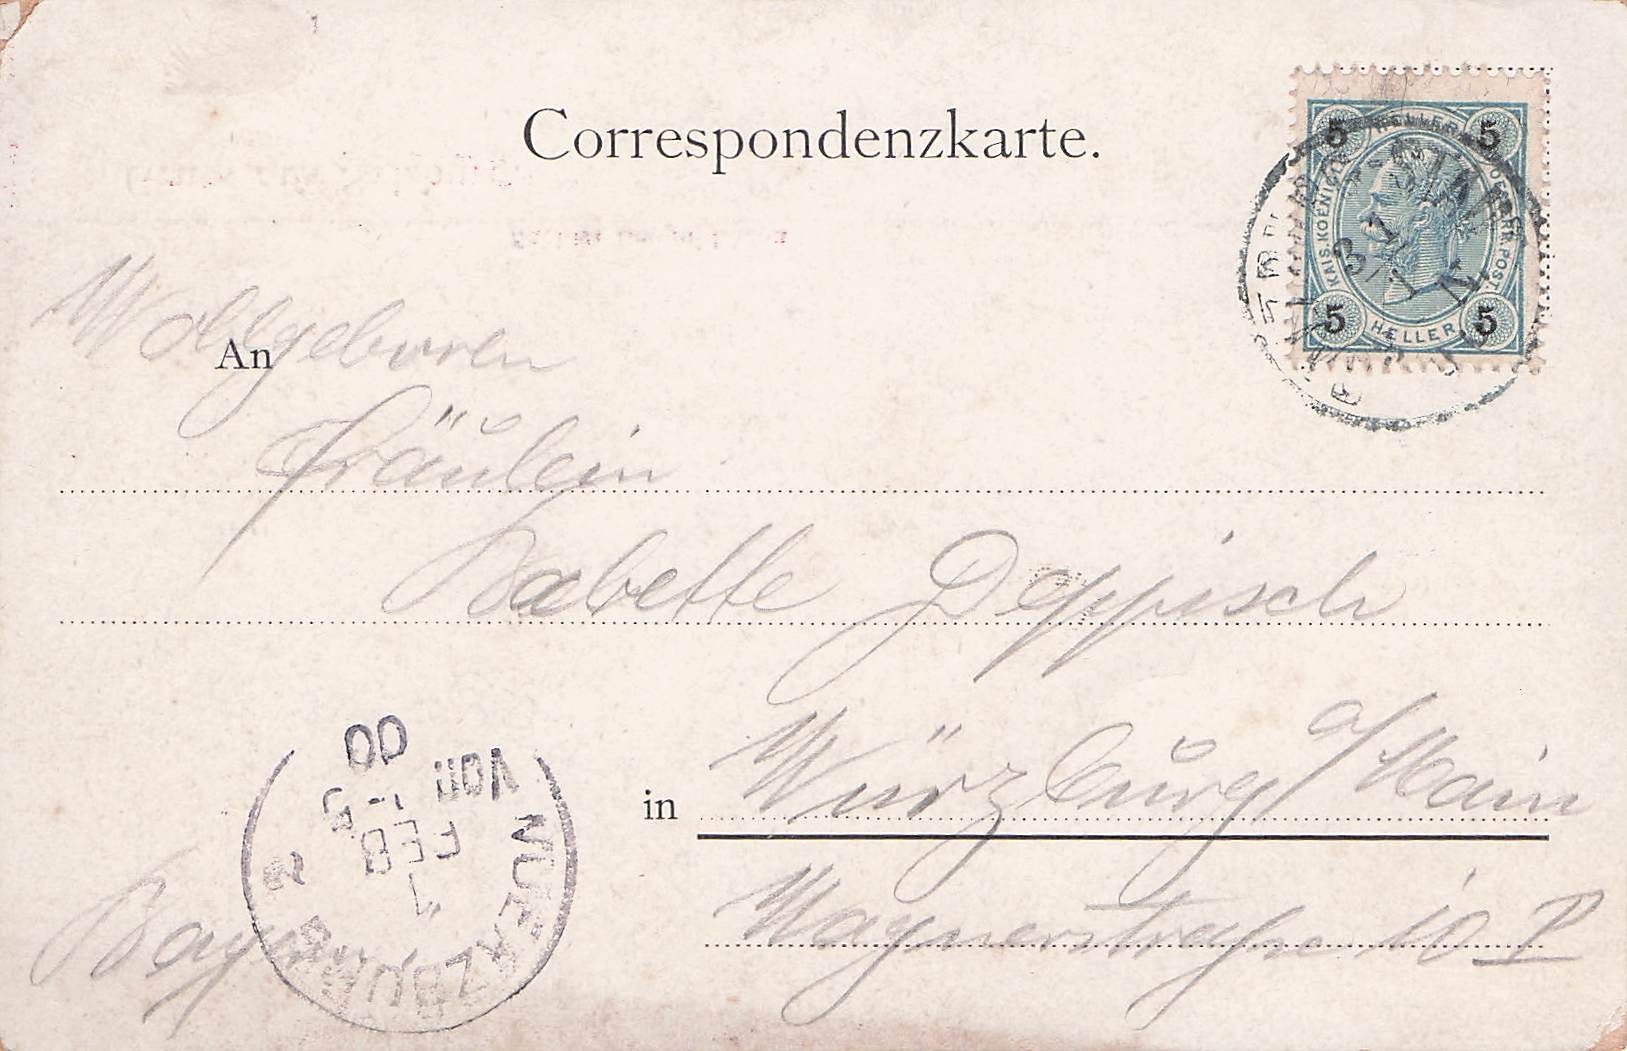 Correspondenzkarte.
5 HELLER 5
KAIS. KOENIGL. OESTERR. POST.
5 HELLER 5
31
1
An
Wohlgeboren
Fräulein
Babette Deppisch
in Würzburg a/Main
Wagnerstraße 10 I
Bayern
WUERZBURG 2
1
FEB
VOR
00